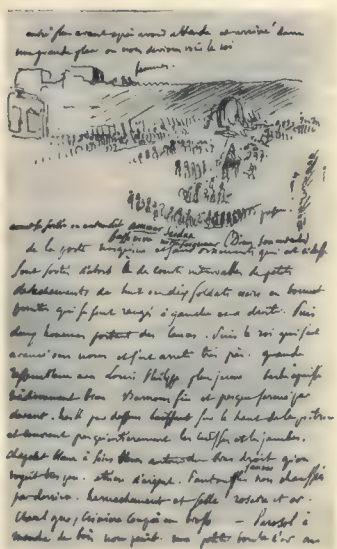 entré plus avant après avoir attendu et arrivé dans
une grande place où nous devions voir le roi
avant sa sortie on entendit ammar Seidna
(Dieu
de la porte et qui est
sont sortis d'abord de courts intervalles de petits
détachements de huit ou dix soldats noirs en bonnet
pointu qui se sont rangés à gauche et à droite. Puis
deux hommes portant des lances. Puis le roi qui s'est
avancé vers nous et s'est arrêté très près. grande
ressemblance avec Louis Philippe plus jeune barbe épaisse
médiocrement brun Burnous fin et presque fermé par
devant. haïk par dessous sur le haut de la poitrine
et couvrant presque entièrement les cuisses et les jambes.
Chapelet blanc à soies bleues autour du bras droit qu'on
voyait très peu. étriers d'argent. Pantoufles jaunes non chaussées
par derrière. harnachement et selle rosâtre et or.
Cheval gris, crinière coupée en brosse - Parasol à
manche de bois non peint. une petite boule d'or au